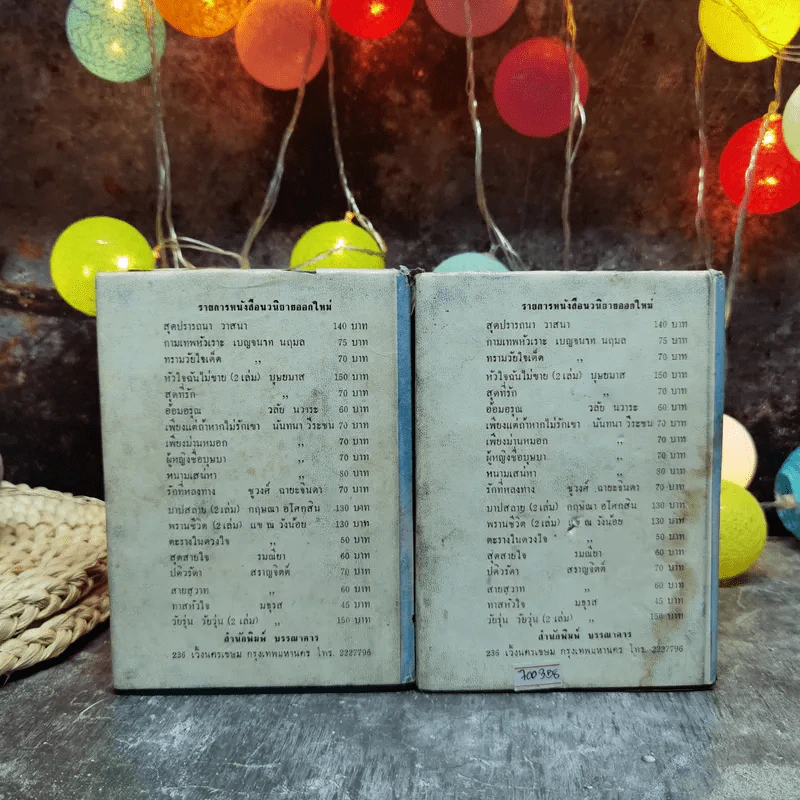 รายการหนังสือนวนิยายออกใหม่
สุดปรารถนา วาสนา 140 บาท
กามเทพหัวเราะ เบญจนรท นฤมล 75 บาท
ทรามวัยใจเด็ด ,, 70 บาท
หัวใจฉันไม่ขาย (2 เล่ม) บุษยมาส 150 บาท
สุดที่รัก ,, 70 บาท
อ้อมอรุณ วลัย นวาระ 60 บาท
เพียงแต่ถ้าหากไม่รักเขา นันทนา วีระชน 70 บาท
เพียงม่านหมอก ,, 70 บาท
ผู้หญิงชื่อบุษบา ,, 70 บาท
หนามเสน่หา ,, 80 บาท
รักที่หลงทาง ชูวงศ์ ฉายะจินดา 70 บาท
บาปสลาย (2 เล่ม) กฤษณา อโศกสิน 130 บาท
พรานชีวิต (2 เล่ม) แข ณ วังน้อย 130 บาท
ตะรางในดวงใจ ,, 50 บาท
สุดสายใจ รมณียา 60 บาท
ปดิวรัดา สราญจิตต์ 70 บาท
สายสวาท ,, 60 บาท
ทาสหัวใจ มธุรส 45 บาท
วัยรุ่น วัยวุ่น (2 เล่ม) ,, 150 บาท
สำนักพิมพ์ บรรณาคาร
236 เวิ้งนครเขษม กรุงเทพมหานคร โทร. 2227796
รายการหนังสือนวนิยายออกใหม่
สุดปรารถนา วาสนา 140 บาท
กามเทพหัวเราะ เบญจนรท นฤมล 75 บาท
ทรามวัยใจเด็ด ,, 70 บาท
หัวใจฉันไม่ขาย (2 เล่ม) บุษยมาส 150 บาท
สุดที่รัก ,, 70 บาท
อ้อมอรุณ วลัย นวาระ 60 บาท
เพียงแต่ถ้าหากไม่รักเขา นันทนา วีระชน 70 บาท
เพียงม่านหมอก ,, 70 บาท
ผู้หญิงชื่อบุษบา ,, 70 บาท
หนามเสน่หา ,, 80 บาท
รักที่หลงทาง ชูวงศ์ ฉายะจินดา 70 บาท
บาปสลาย (2 เล่ม) กฤษณา อโศกสิน 130 บาท
พรานชีวิต (2 เล่ม) แข ณ วังน้อย 130 บาท
ตะรางในดวงใจ ,, 50 บาท
สุดสายใจ รมณียา 60 บาท
ปดิวรัดา สราญจิตต์ 70 บาท
สายสวาท ,, 60 บาท
ทาสหัวใจ มธุรส 45 บาท
วัยรุ่น วัยวุ่น (2 เล่ม) ,, 150 บาท
สำนักพิมพ์ บรรณาคาร
236 เวิ้งนครเขษม กรุงเทพมหานคร โทร. 2227796